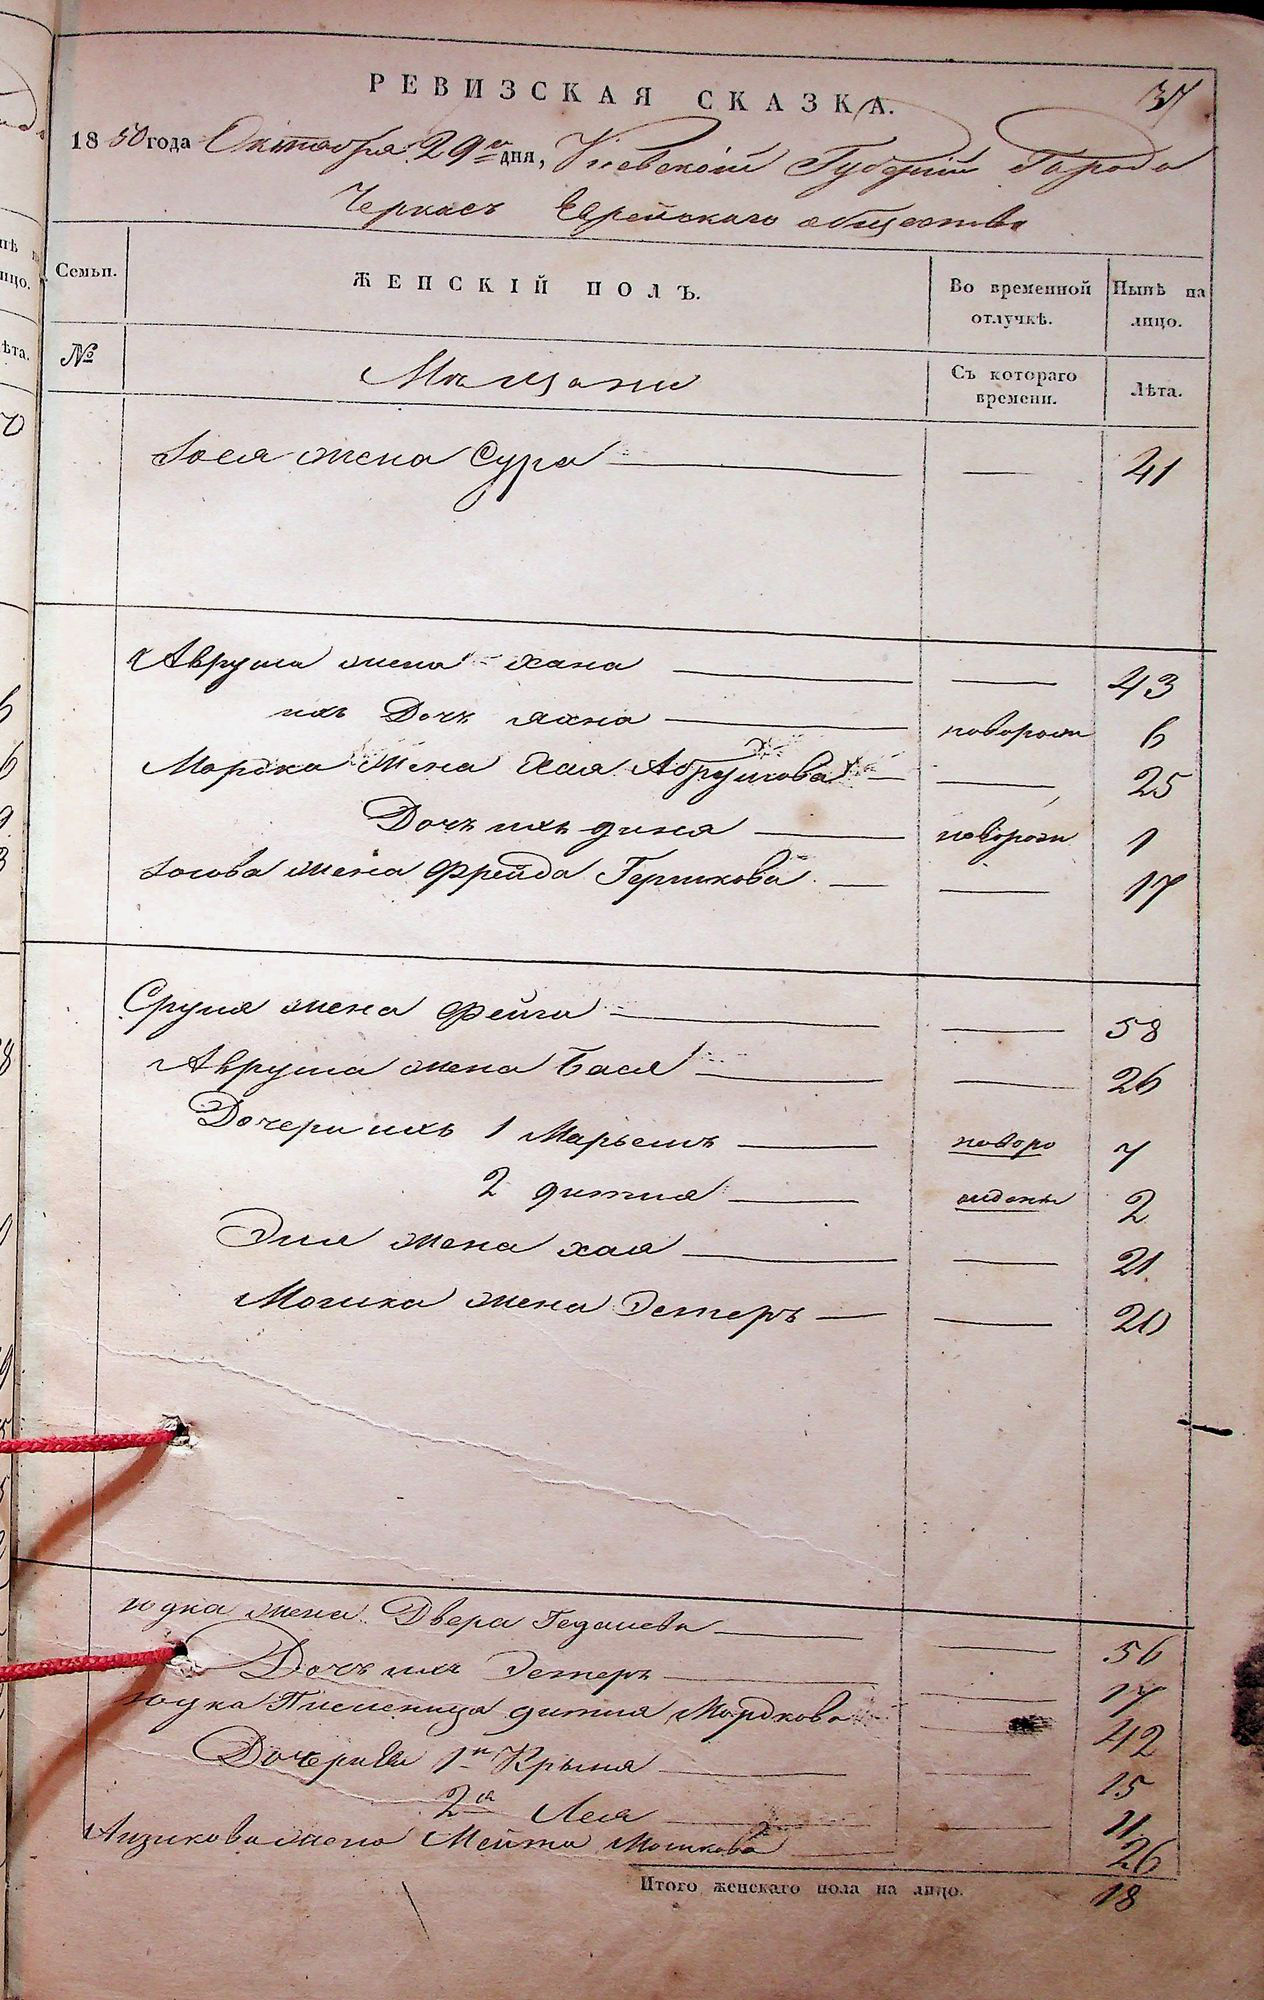 37
РЕВИЗСКАЯ СКАЗКА.
1850 года Октября 29го дня, Киевской Губерніи Города
Черкасъ Еврейскаго общества
Семьи. ЖЕНСКІЙ ПОЛЪ. Во временной отлучкѣ. Нынѣ на лицо.
№ Мѣщани Съ котораго времени. Лѣта.
Іося жена Сура — — 41
Аврума жена Хана — — 43
ихъ Дочь Яхна — 6
Мордка жена Хая Абрумова — — 25
Дочь ихъ Диня — 1
Іосова жена Фрейда Гершкова — — 17
Сруля жена Фейга — — 58
Аврума жена Бася — — 26
Дочери ихъ 1 Марьемъ — 7
2 — 2
жена Хая — — 21
Мошка жена Эстеръ — — 20
Юдка жена Двера — — 56
Дочь ихъ Эстеръ — — 17
Юдка Мордкова — 42
Дочери 1я Крыня — — 15
2я Лея — — 11
Айзикова жена Мошкова — — 26
Итого женскаго пола на лицо. 18